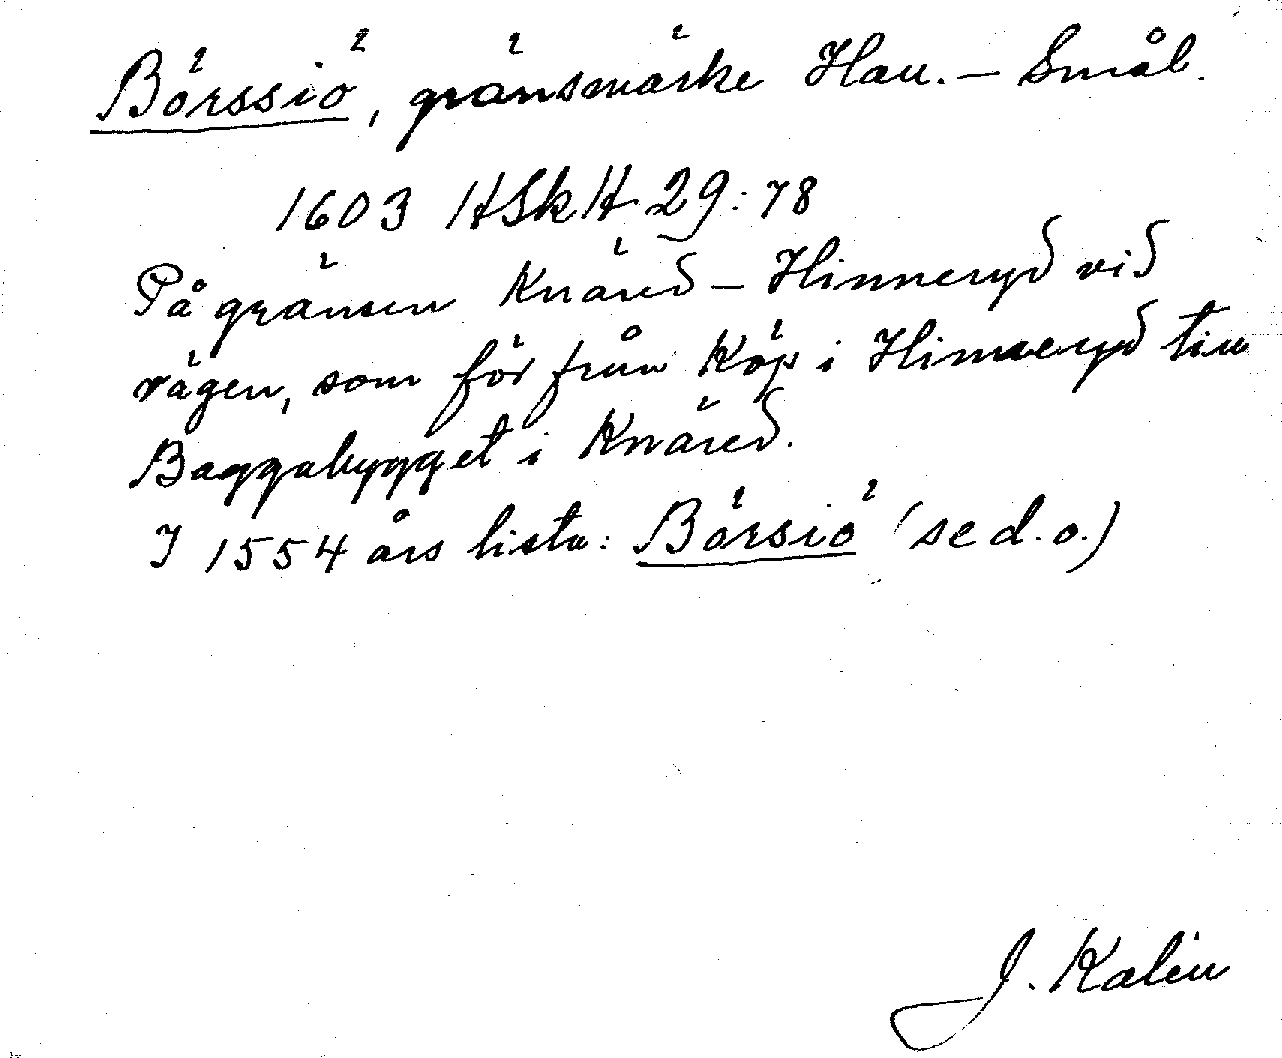 Börssiö, gränsmärke Hall. – Smål.
1603 HSkH 29:78
På gränsen Knäred – Hinneryd vid
vägen, som för från Köp i Hinneryd till
Baggabygget i Knäred.
I 1554 års lista: Börsiö (se d.o.)
J. Kalén